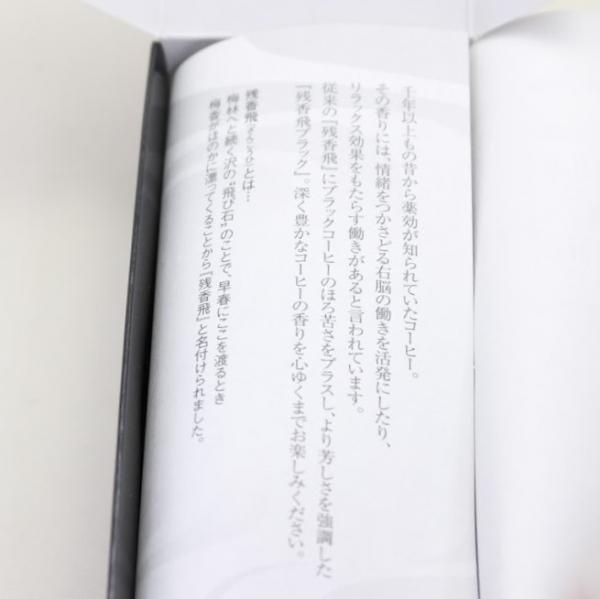 千年以上もの昔から薬効が知られていたコーヒー。
その香りには、情緒をつかさどる右脳の働きを活発にしたり、
リラックス効果をもたらす働きがあると言われています。
従来の『残香飛』にブラックコーヒーのほろ苦さをプラスし、より芳しさを強調した
『残香飛ブラック』。深く豊かなコーヒーの香りを心ゆくまでお楽しみください。
残香飛(ざんこうひ)とは…
梅林へと続く沢の“飛び石”のことで、早春にここを渡るとき
梅香がほのかに漂ってくることから『残香飛』と名付けられました。